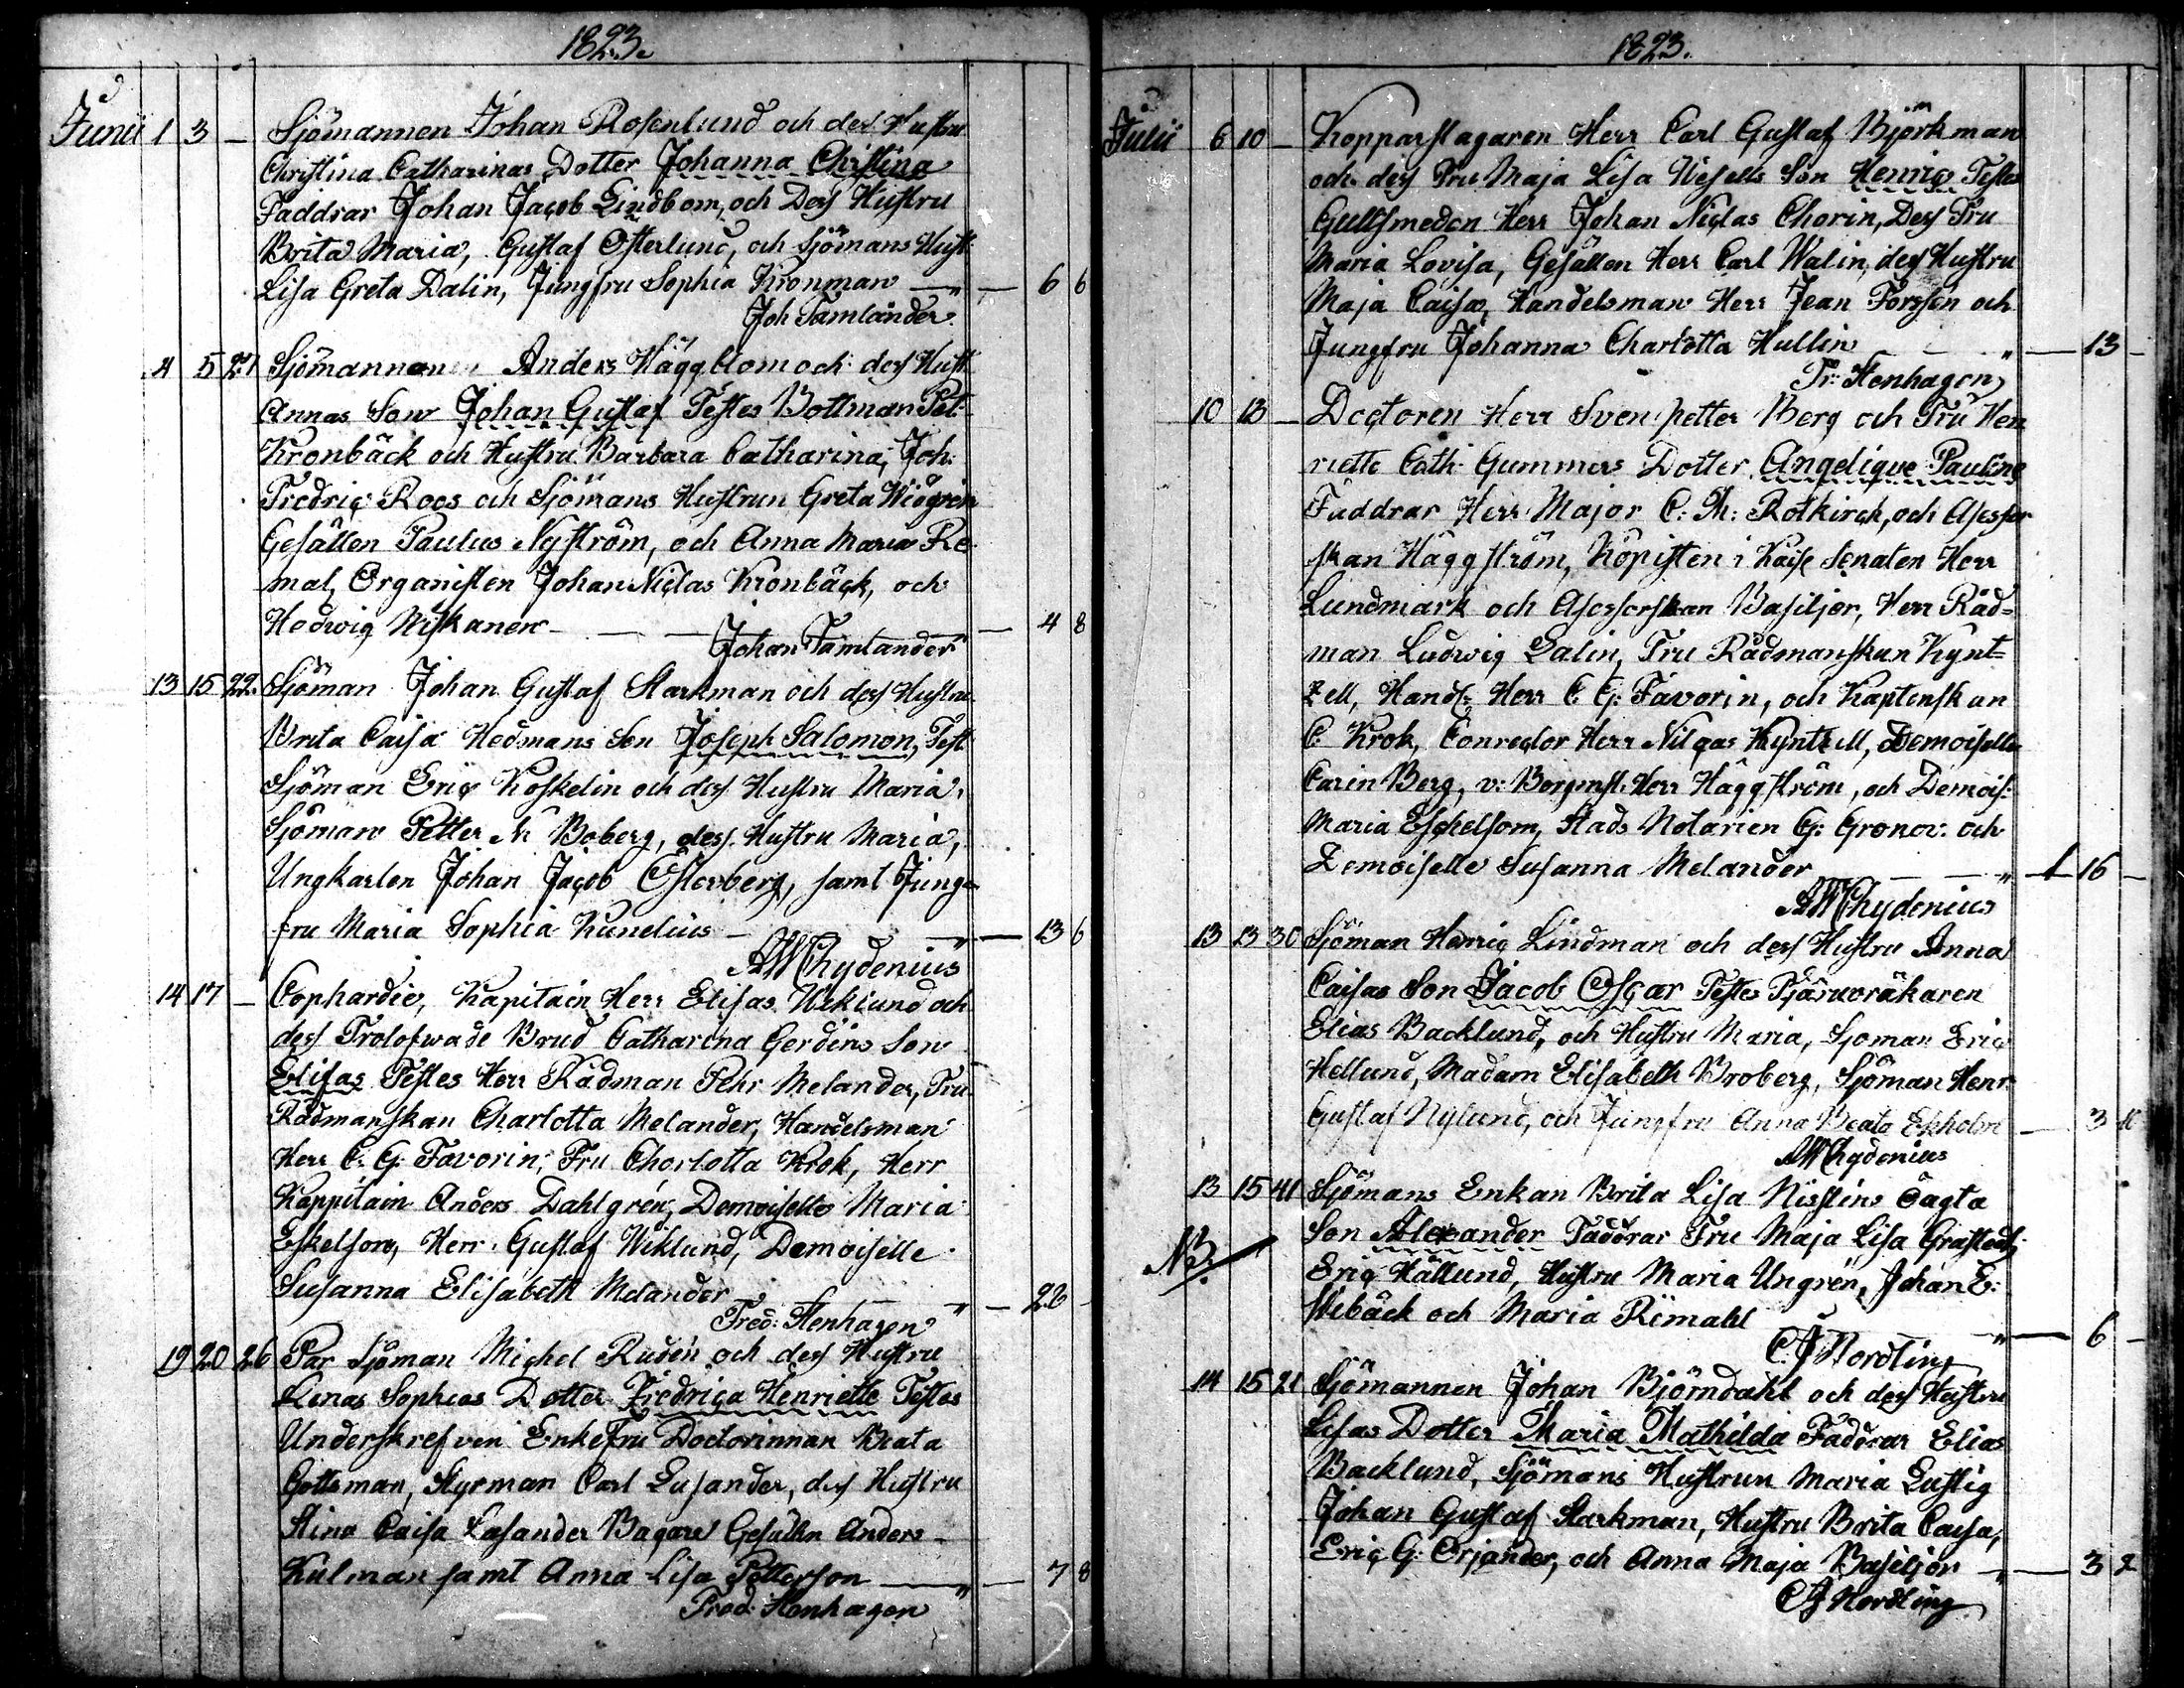 1823.
Junii 1 3 - Sjömannen Johan Rosenlund och des Hustru
Christina Catharinas Dotter Johanna Christina
Faddrar Johan Jacob Lindbom, och Des Hustru
Brita Maria, Gustaf Österlund, och Sjömans Hust
Lisa Greta Dalin, Jungfru Sophia Kronman — " — 6 6
Joh Tamlander.
4 5 21 Sjömannen Anders Häggblom och des Hust
Annas Son Johan Gustaf Testes Bottman Pet:
Kronbäck och Hustru Barbara Catharina, Joh:
Fredric Roos och Sjömans Hustrun Greta Widgrén
Gesällen Paulus Nyström, och Anna Maria Re
mal, Organisten Johan Niclas Kronbäck, och
Hedwig Niskanen — — 4 8
Johan Tamlander
13 15 22. Sjöman Johan Gustaf Starkman och des Hustru
Brita Caisa Hedmans Son Joseph Salomon, Test
Sjöman Eric Koskelin och des Hustru Maria,
Sjöman Petter M Boberg, des Hustru Maria,
Ungkarlen Johan Jacob Österberg, samt Jung-
fru Maria Sophia Kunelius — " — 13 6
AWChydenius
14 17 - Cophardie, Kapitain Herr Elisas Wiklund och
des Trolofwade Brud Catharina Gerdins Son
Elisas Testes Herr Rådman Pehr Melander, Fru
Rådmanskan Charlotta Melander, Handelsman
Herr C. G. Favorin, Fru Charlotta Krok, Herr
Kappitain Anders Dahlgrén, Demoiselle Maria
Eskelson, Herr Gustaf Wiklund, Demoiselle
Susanna Elisabeth Melander " — 26 -
Fred: Stenhagen
19 20 26 Par Sjöman Michel Rudén och des Hustru
Lenas Sophias Dotter Fredrica Henriette Testes
Underskrefven Enkefru Doctorinnan Beata
Gottsman, Styrman Carl Lusander, des Hustru
Stina Caisa Lusander Bagare Gesällen Anders
Kulman samt Anna Lisa Petterson — " — 7 8
Fred: Stenhagen
1823.
Julii 6 10 - Kopparslagaren Herr Carl Gustaf Björkman
och des Fru Maja Lisa Wesells Son Henric Testes
Gullsmeden Herr Johan Niclas Chorin, Des Fru
Maria Lovisa, Gesällen Herr Carl Walin, des Hustru
Maja Caisa, Handelsman Herr Jean Forssén och
Jungfru Johanna Charlotta Hullin " — 13 -
Fr: Stenhagen
10 13 - Doctoren Herr Sven Petter Berg och Fru Hen
riette Cath: Gummers Dotter Angelique Pauline
Faddrar Herr Major C: M: Rotkirch, och Asessor
skan Häggström, Kopisten i Kaise Senaten Herr
Lundmark och Asessorskan Basiljer, Herr Råd=
man Ludwig Galin, Fru Rådmanskan Kynt=
zell, Handl: Herr C. G: Favorin, och Kaptenskan
C Krok, Conrector Herr Nilcas Kyntzell, Demoiselle
Carin Berg, v: Borgmst: Herr Häggström, och Demois:
Maria Eschelsom, Stads Notarien G: Gronov: och
Demoiselle Susanna Melander " — 1 16 -
AWChydenius
13 13 30 Sjöman Henric Lindman och des Hustru Anna
Caisas Son Jacob Oscar Testes Tjäruvräkaren
Elias Backlund, och Hustru Maria, Sjoman Eric
Hellund, Madam Elisabeth Broberg, Sjöman Henr:
Gustaf Nylund, och Jungfru Anna Beata Ekholm — 3
AWChydenius
13 15 41 Sjömans Enkan Brita Lisa Nissléns Oägta
NB. Son Alexander Faddrar Fru Maja Lisa
Eric Hällund, Hustru Maria Ungrén, Johan E:
Wibäck och Maria Rimahl " — 6 -
C. J Nordling
14 15 21 Sjömannen Johan Björndahl och des Hustru
Lisas Dotter Maria Mathilda Faddrar Elias
Backlund, Sjömans Hustrun Maria Lustig
Johan Gustaf Starkman, Hustru Brita Caisa,
Eric G: Orjander, och Anna Maja Basiljer " — 3 2
C J Nordling